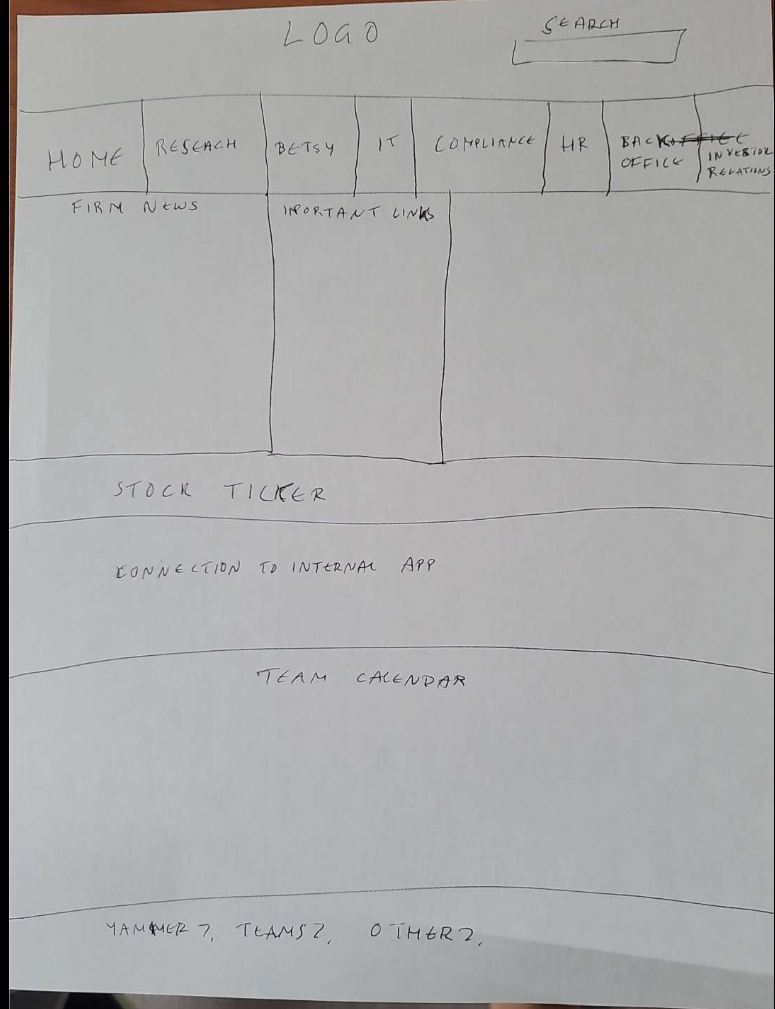 LOGO
SEARCH
HOME
RESEACH
BETSY
IT
COMPLIANCE
HR
BACKOFFICE
OFFICE
INVESTOR
RELATIONS
FIRM NEWS
IMPORTANT LINKS
STOCK TICKER
CONNECTION TO INTERNAL APP
TEAM CALENDAR
YAMMER?, TEAMS?, OTHER?,